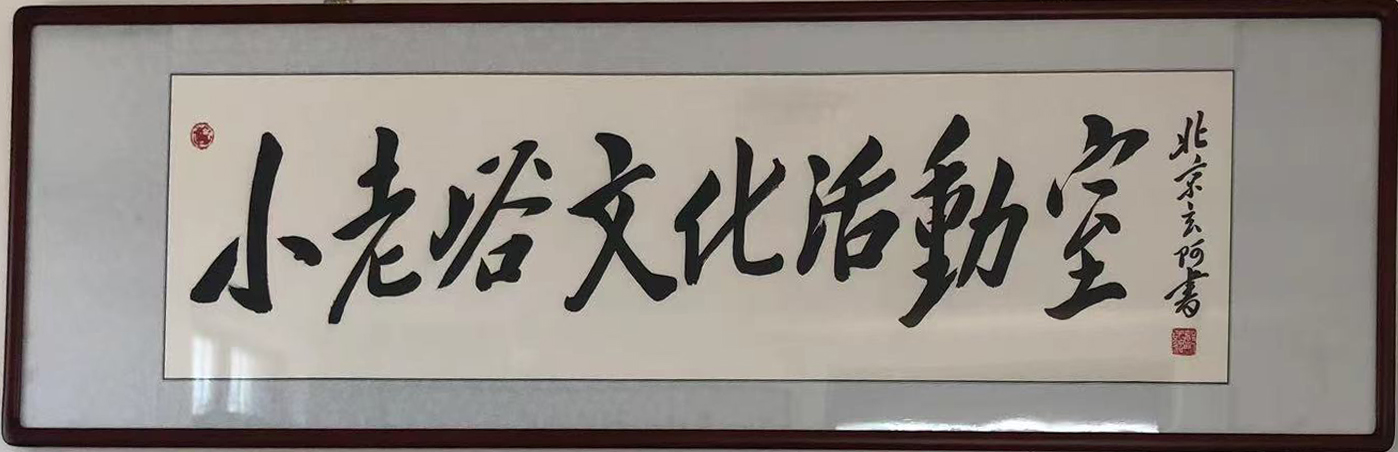 小老峪文化活動室
北京玄阿書